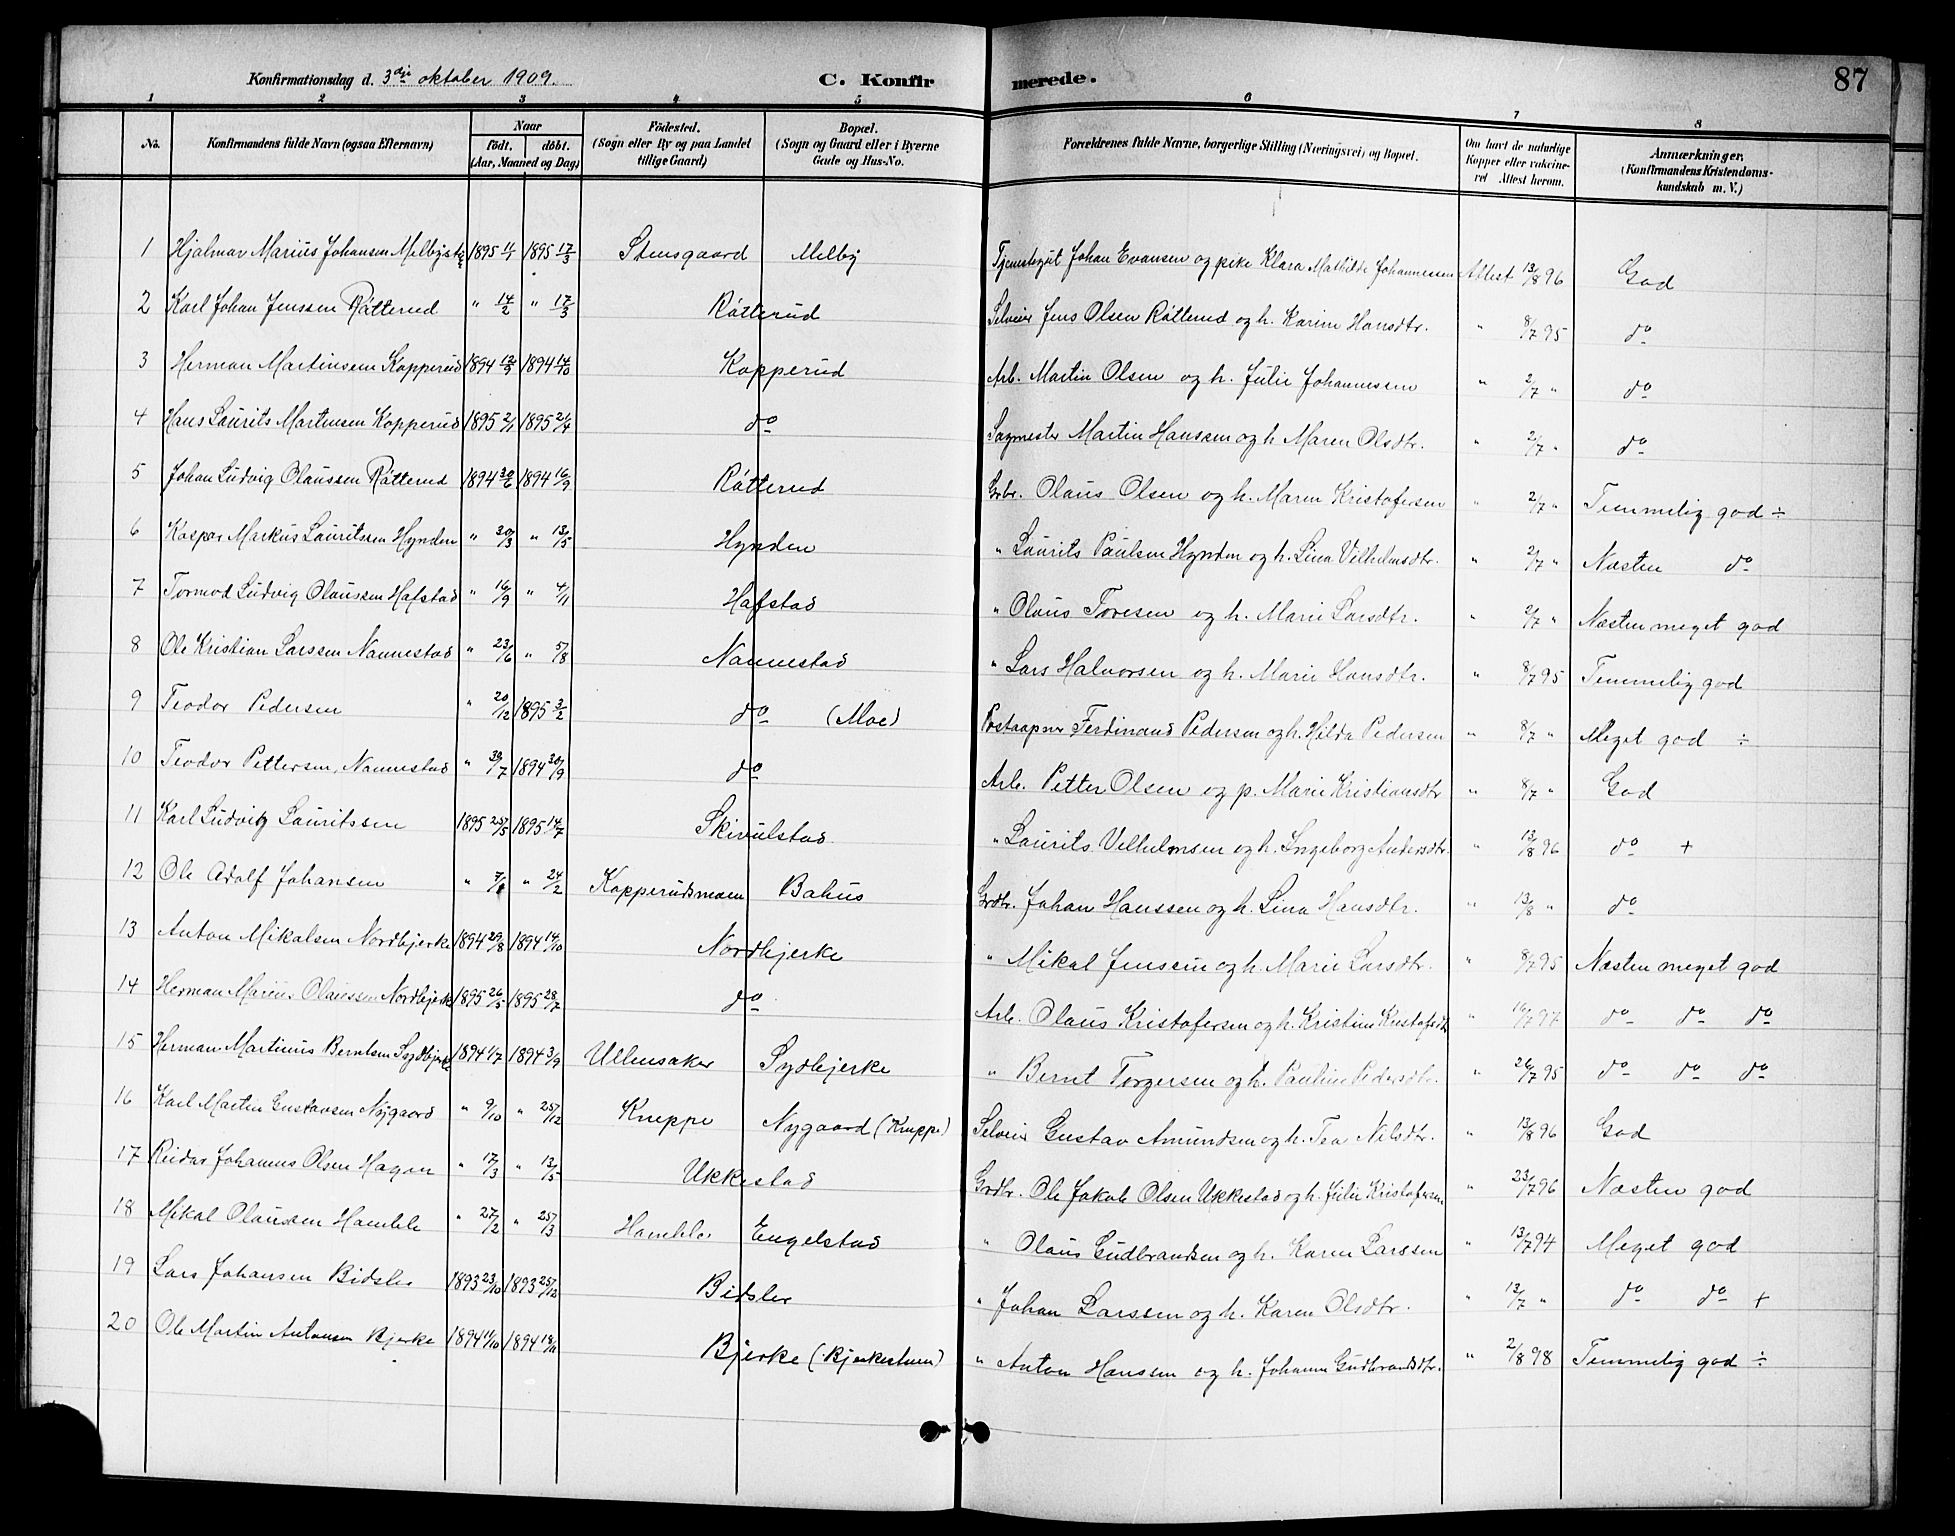 Konfirmationsdag d. 3dje oktober 1909.
C. Konfirmerede.
87
1 2 3 4 5 6 7 8
No.
Konfirmandens fulde Navn (ogsaa Efternavn)
Naar
födt. döbt.
(Aar, Maaned og Dag)
Födested.
(Sogn eller By og paa Landet
tillige Gaard)
Bopæl.
(Sogn og Gaard eller i Byerne
Gade og Hus-No.
Forældrenes fulde Navne, borgerlige Stilling (Næringsvei) og Bopæl.
Om havt de naturlige
Kopper eller vakcine-
ret Attest herom.
Anmærkninger.
(Konfirmandens Kristendoms-
kundskab m. V.)
1 Hjalmar Marius Johansen 1895 1895 17/3 Stensgaard Melby Tjenestegut Johan Evansen og pike Klara Mathilde Johannessen Attest 13/8 96 God
2 Karl Johan Jenssen Råtterud " 14/2 " 17/3 Råtterud Selveier Jens Olsen Råtterud og h. Karine Hansdtr. " 8/7 95 do
3 Herman Martinsen Kopperud 1894 1894 14/10 Kopperud Arb. Martin Olsen og h. Julie Johannessen " 2/7 " do
4 Hans Laurits Martinsen Kopperud 1895 2/1 1895 21/4 do Sagmester Martin Hanssen og h. Maren Olsdtr. " 2/7 " do
5 Johan Ludvig Olaussen Råtterud 1894 30/6 1894 16/9 Råtterud Gbr. Olaus Olsen og h. Maren Kristofersen " 2/7 " Temmelig god ÷
6 Kaspar Markus Lauritssen Hynden " 30/3 " 13/5 Hynden " Laurits Paulsen Hynden og h. Lina Vilhelmsdtr. " 2/7 " Næsten do
7 Tormod Ludvig Olaussen Hafstad " 16/9 " 4/11 Hafstad " Olaus Toresen og h. Marie Larsdtr. " 2/7 " Næsten meget god
8 Ole Kristian Larssen Nannestad " 23/6 " 5/8 Nannestad " Lars Halvorsen og h. Marie Hansdtr. " 8/7 95 Temmelig god
9 Teodor Pedersen " 20/12 1895 3/2 do (Moe) Postaapner Ferdinand Pedersen og h. Hilda Pedersen " 8/7 " Meget god ÷
10 Teodor Pettersen, Nannestad " 30/7 1894 30/9 do Arb. Petter Olsen og p. Marie Kristiansdtr " 8/7 " God
11 Karl Ludvig Lauritssen 1895 25/5 1895 14/7 Skivulstad " Laurits Vilhelmsen og h. Ingeborg Andersdtr. " 13/8 96 do +
12 Ole Adolf Johansen " " 24/2 Kopperudsmoen Bahus Grdbr. Johan Hanssen og h. Lina Hansdtr. " 13/8 " do
13 Anton Mikalsen Nordbjerke 1894 29/8 1894 14/10 Nordbjerke " Mikal Jenssen og h. Marie Larsdtr. " 8/7 95 Næsten meget god
14 Herman Marius Olaussen Nordbjerke 1895 26/5 1895 28/7 do Arb. Olaus Kristofersen og h. Kristine Kristofdtr " 16/7 97 do do do
15 Herman Martinius Berntsen Sydbjerke 1894 1/7 1894 3/9 Ullensaker Sydbjerke " Bernt Torgersen og h. Pauline Pedersdtr. " 26/7 95 do do do
16 Karl Martin Gustavsen Nygaard " 9/10 " 25/12 Kneppe Nygaard (Kneppe) Selveier Gustav Amundsen og h. Tea Nilsdtr. " 13/8 96 God
17 Reidar Johannes Olsen Hagan " 17/3 " 13/5 Ukkestad Grdbr. Ole Jakob Olsen Ukkestad og h. Julie Kristofersen " 23/7 96 Næsten god
18 Mikal Olaussen Hamble " 27/2 " 25/3 Hamble Engelstad " Olaus Gudbrandsen og h. Karen Larssen " 13/7 94 Meget god
19 Lars Johansen Bidsler 1893 23/10 1893 25/12 Bidsler " Johan Larssen og h. Karen Olsdtr. " 13/7 " do do +
20 Ole Martin Antonsen Bjerke 1894 11/10 1894 18/11 Bjerke (Bjerkestuen) " Anton Hanssen og h. Johanne Gudbrandsdtr. " 2/8 98 Temmelig god ÷